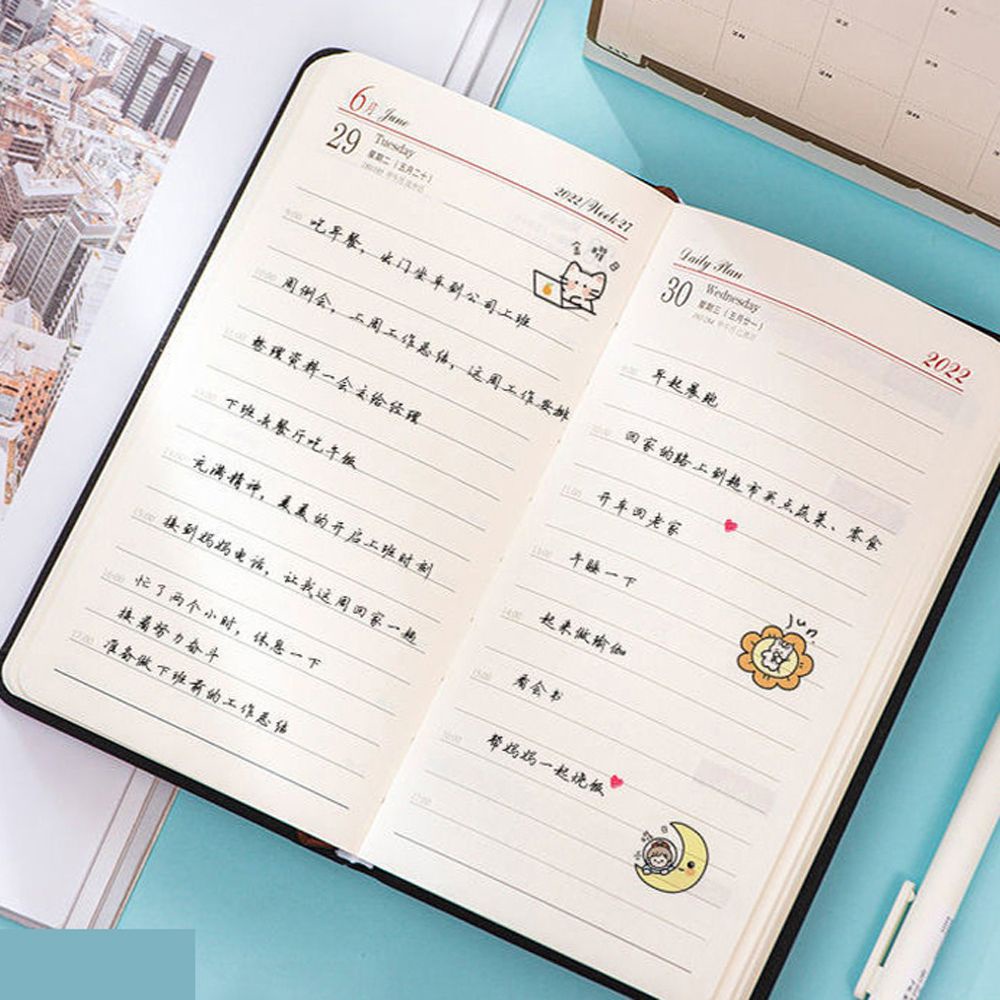 6月 June
29 Tuesday
星期二（五月二十）
2022/Week-27
9:00 吃早餐，出门坐车到公司上班
10:00 周例会，上周工作总结，这周工作安排
11:00 整理资料一会交给经理
下班去餐厅吃午饭
充满精神，美美的开启上班时刻
15:00 接到妈妈电话，让我这周回家一起
16:00 忙了两个小时，休息一下
接着努力奋斗
17:00 准备做下班前的工作总结
Daily Plan
30 Wednesday
星期三（五月廿一）
2022
9:00 早起晨跑
10:00 回家的路上到超市买点蔬菜、零食
11:00 开车回老家
13:00 午睡一下
14:00 起来做瑜伽
15:00 看会书
16:00 帮妈妈一起烧饭
17:00